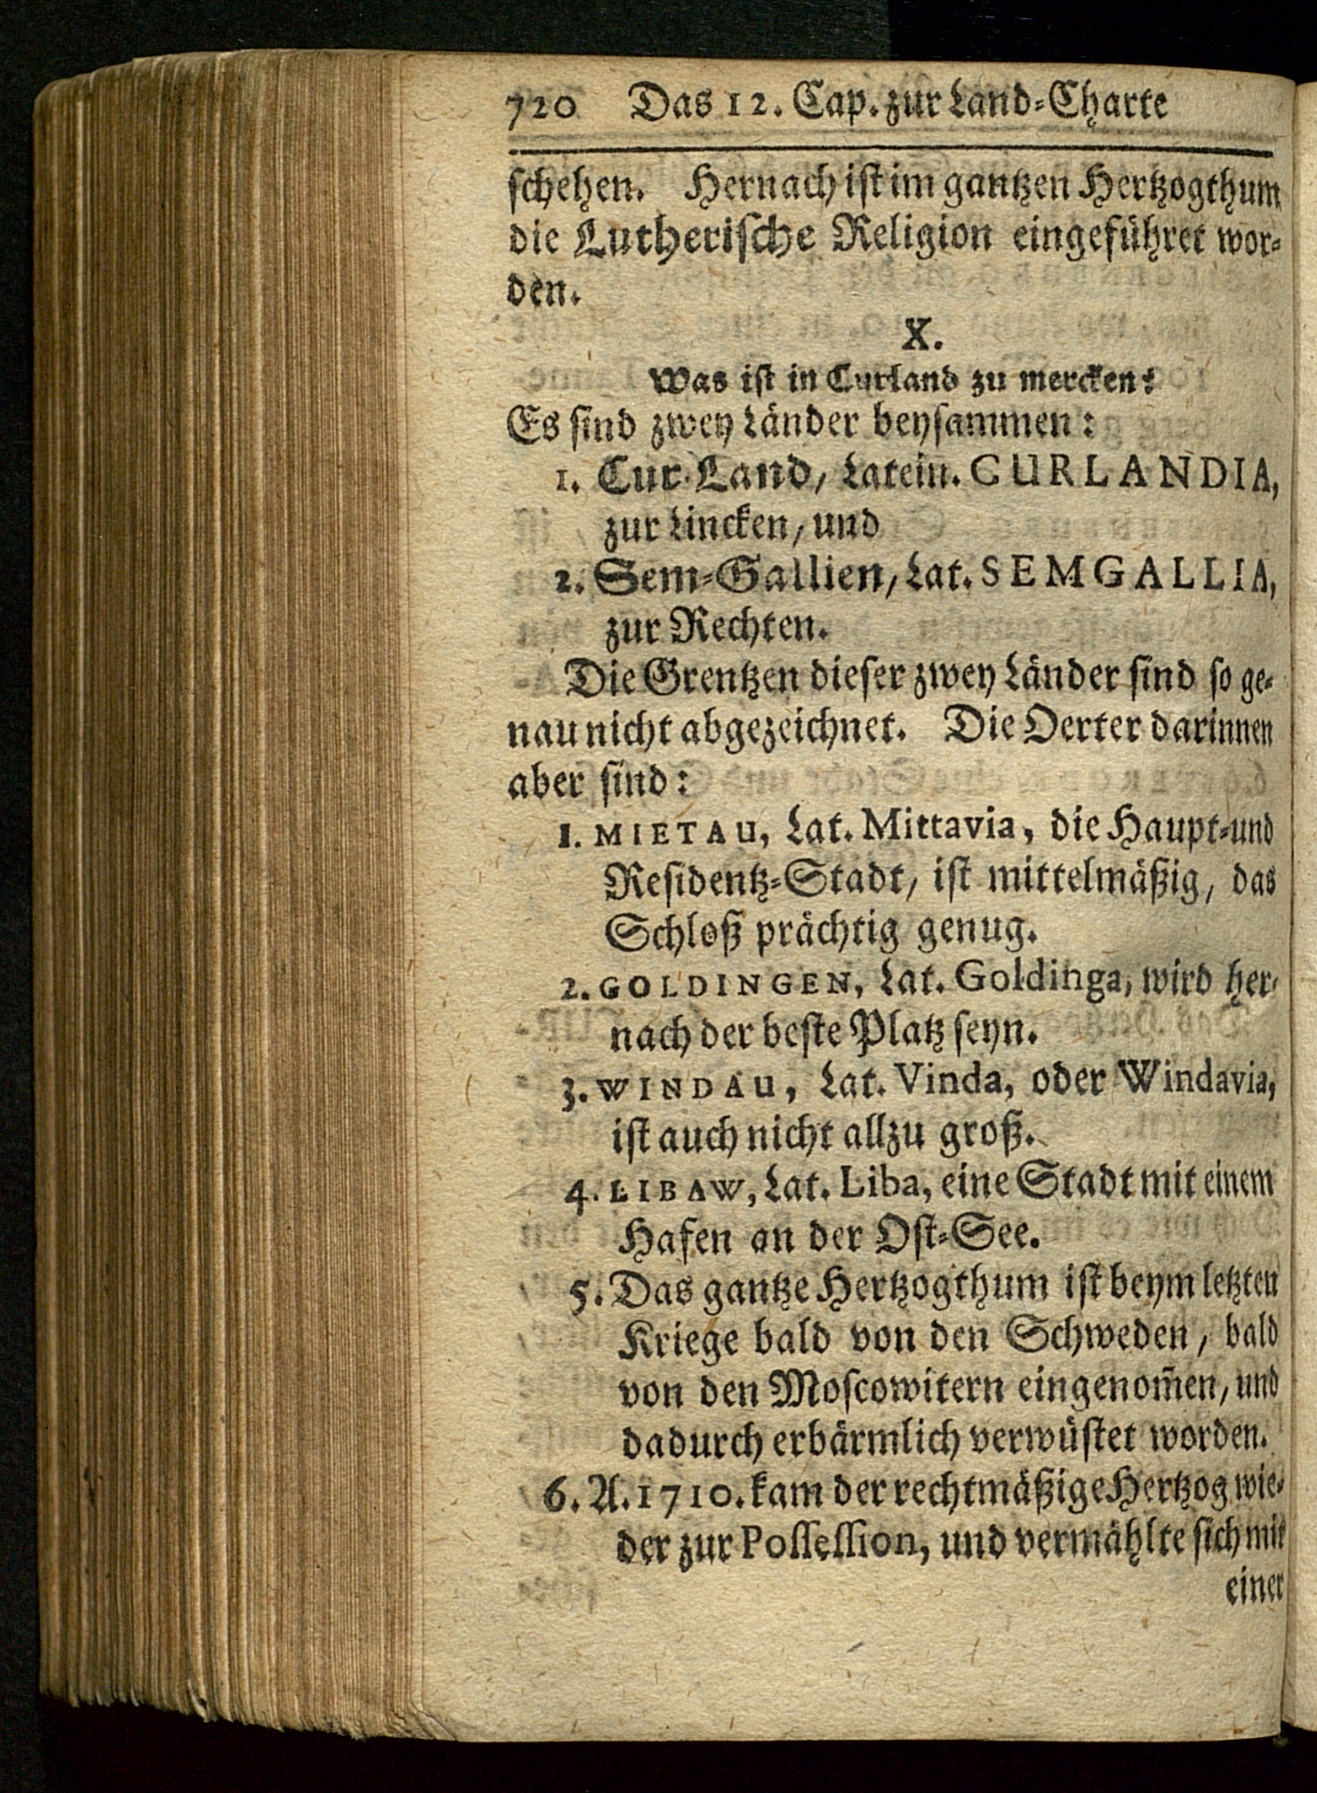 720 Das 12. Cap. zur Land-Charte
schehen. Hernach ist im gantzen Hertzogthum
die Lutherische Religion eingeführet wor-
den.
X.
Was ist in Curland zu mercken?
Es sind zwey Länder beysammen:
1. Cur-Land, Latein. CURLANDIA,
zur Lincken, und
2. Sem-Gallien, Lat. SEMGALLIA,
zur Rechten.
Die Grentzen dieser zwey Länder sind so ge-
nau nicht abgezeichnet. Die Oerter darinnen
aber sind:
1. MIETAU, Lat. Mittavia, die Haupt-und
Residentz-Stadt, ist mittelmäßig, das
Schloß prächtig genug.
2. GOLDINGEN, Lat. Goldinga, wird her-
nach der beste Platz seyn.
3. WINDAU, Lat. Vinda, oder Windavia,
ist auch nicht allzu groß.
4. LIBAW, Lat. Liba, eine Stadt mit einem
Hafen an der Ost-See.
5. Das gantze Hertzogthum ist beym letzten
Kriege bald von den Schweden, bald
von den Moscowitern eingenom̃en, und
dadurch erbärmlich verwüstet worden.
6. A. 1710. kam der rechtmäßige Hertzog wie-
der zur Possession, und vermählte sich mit
einer